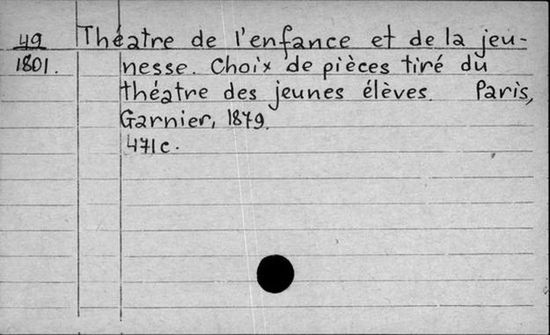 49 Théatre de l'enfance et de la jeu-
1801. nesse. Choix de pièces tiré du
théatre des jeunes élèves. Paris,
Garnier, 1879.
471c.